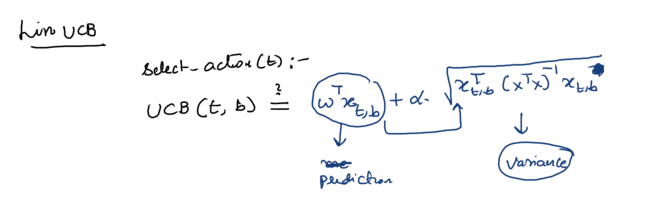 Lin UCB
select_action(t) :-
UCB(t, b) ≟ ω^T x_{t,b} + α. √(x_{t,b}^T (X^T X)^{-1} x_{t,b})
prediction
variance